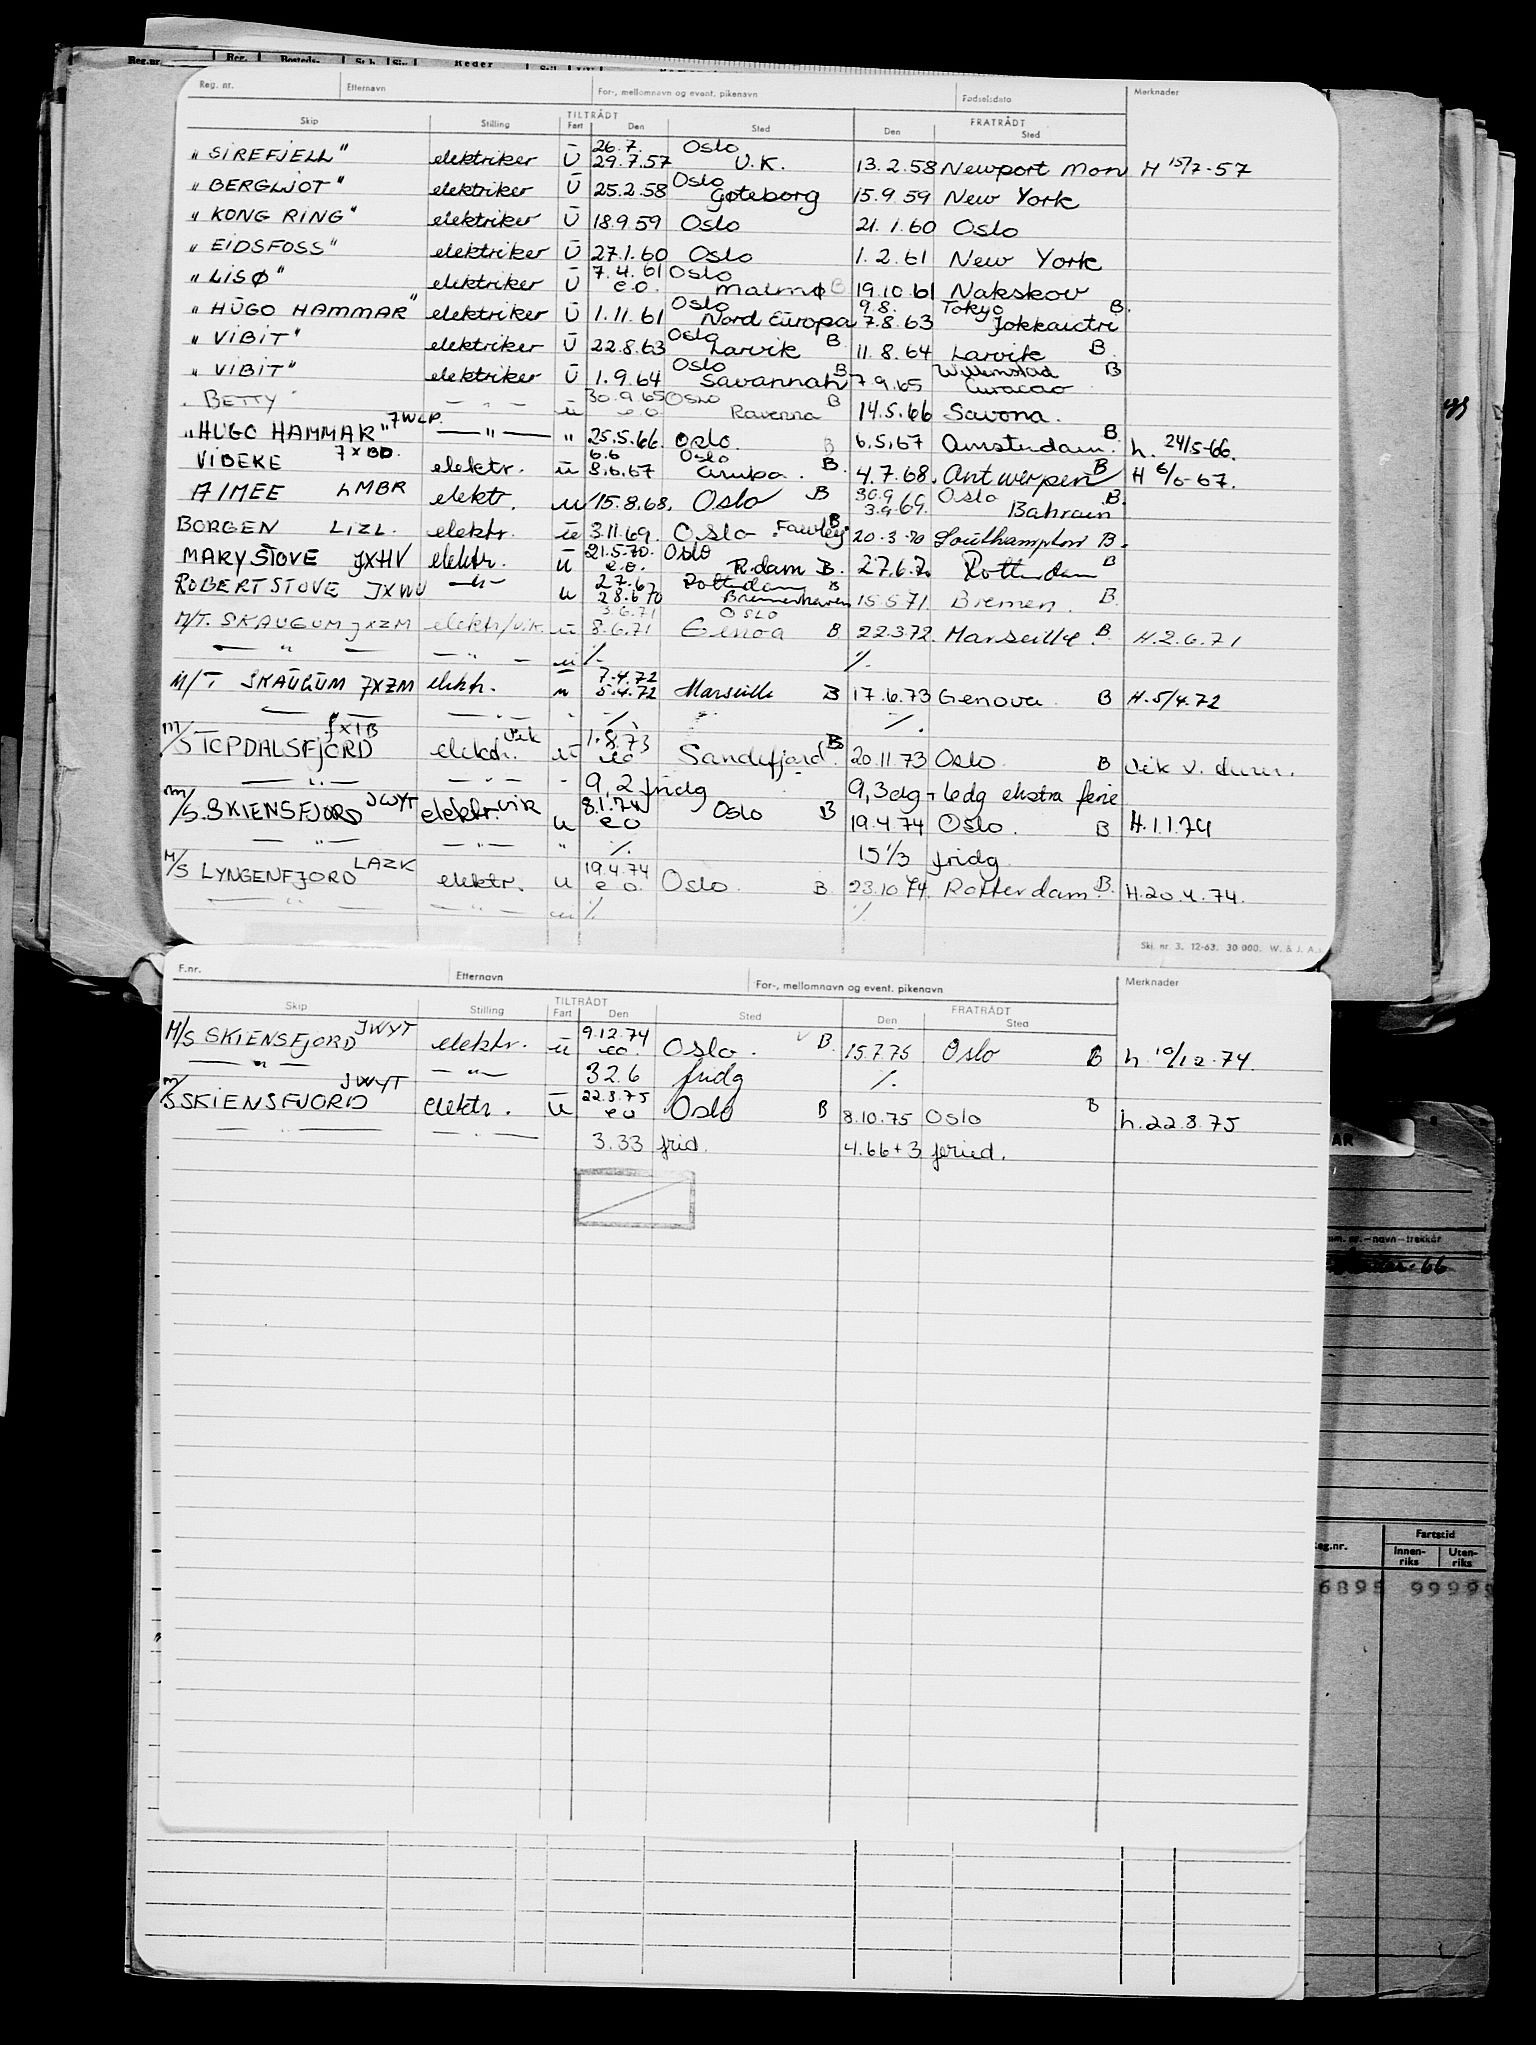 Reg. nr. Etternavn For-, mellomnavn og event. pikenavn Fødselsdato Merknader
Skip Stilling TILTRÅDT Fart Den Sted FRATRÅDT Den Sted
"SIREFJELL" elektriker U 26.7. Oslo
29.7.57 U.K. 13.2.58 Newport Mon H 15/7-57
"BERGLJOT" elektriker U 25.2.58 Oslo Gøteborg 15.9 59 New York
"KONG RING" elektriker U 18.9 59 Oslo 21.1.60 Oslo
"EIDSFOSS" elektriker U 27.1.60 Oslo 1.2.61 New York
"LISØ" elektriker U 7.4.61 Oslo
e.o. Malmø B 19.10.61 Nakskov
"HUGO HAMMAR" elektriker U 1.11.61 Oslo Nord Europa 9.8. Tokyo B.
7.8.63
"VIBIT" elektriker U 22.8.63 Oslo Larvik B 11.8.64 Larvik B
"VIBIT" elektriker U 1.9.64 Oslo Savannah B 7.9.65 Willemstad Curacao B
BETTY — " — u 30.9.65 Oslo
e.o. Ravenna B 14.5.66 Savona.
"HUGO HAMMAR" 7WCP. — " — " 25.5.66. Oslo. B 6.5.67 Amsterdam. B. h. 24/5-66.
VIBEKE 7XBD. elektr. u 6.6 Oslo
8.6.67 Aruba. B. 4.7.68. Antwerpen B H 6/6-67.
AIMEE LMBR elektr. u 15.8.68. Oslo B 30.9 Oslo B.
3.9.69. Bahrain
BORGEN LIZL. elektr. u 3.11.69. Oslo - Fawley B. 20.3.70 Southampton B.
MARY STOVE JXHV elektr. u 21.5.70. Oslo
e.o. R.dam B. 27.6.70 Rotterdam B
ROBERT STOVE JXWU — " — u 27.6 Rotterdam B
28.6 70 Bremerhaven 15.5 71 Bremen. B.
M/T. SKAUGUM JXZM elektr/vik u 3.6.71 OSLO
8.6.71 Genoa B 22.3.72. Marseille B. H.2.6.71
— " — — " — u % %
M/T SKAUGUM JXZM elektr. u 7.4.72
5.4.72 Marseille B 17.6.73 Genova B H.5/4.72
— " — — " — " % %
M/S TOPDALSFJORD JXIB elektr. vik u 1.8.73
eo Sandefjord. B 20.11.73 Oslo B
— " — — " — " 9,2 fridg 9,3dg + 6dg ekstra ferie
M/S. SKIENSFJORD JWYT elektr. vik u 8.1.74
e o Oslo B 19.4.74 Oslo. B H.1.1.74
— " — — " — " % 15 1/3 fridg
M/S LYNGENFJORD LAZK elektr. u 19.4.74
e o. Oslo. B. 23.10 74. Rotterdam. B. H.20.4.74.
— " — — " — u % %
Skj. nr. 3. 12-63. 30 000. W. & J. A.
F.nr. Etternavn For-, mellomnavn og event. pikenavn Merknader
Skip Stilling TILTRÅDT Fart Den Sted FRATRÅDT Den Sted
M/S SKIENSFJORD JWYT elektr. u 9.12.74
eo. Oslo. B. 15.7.75 Oslo B h. 10/12-74.
— " — — " — 32.6 fridg %
M/S SKIENSFJORD JWYT elektr. u 22.8.75
eo Oslo B 8.10.75 Oslo B h.22.8.75
— " — — " — 3.33 frid. 4.66 + 3 feried.
navn—trekkår
66
Reg.nr. Fartstid
Innen-riks Uten-riks
6895 99999